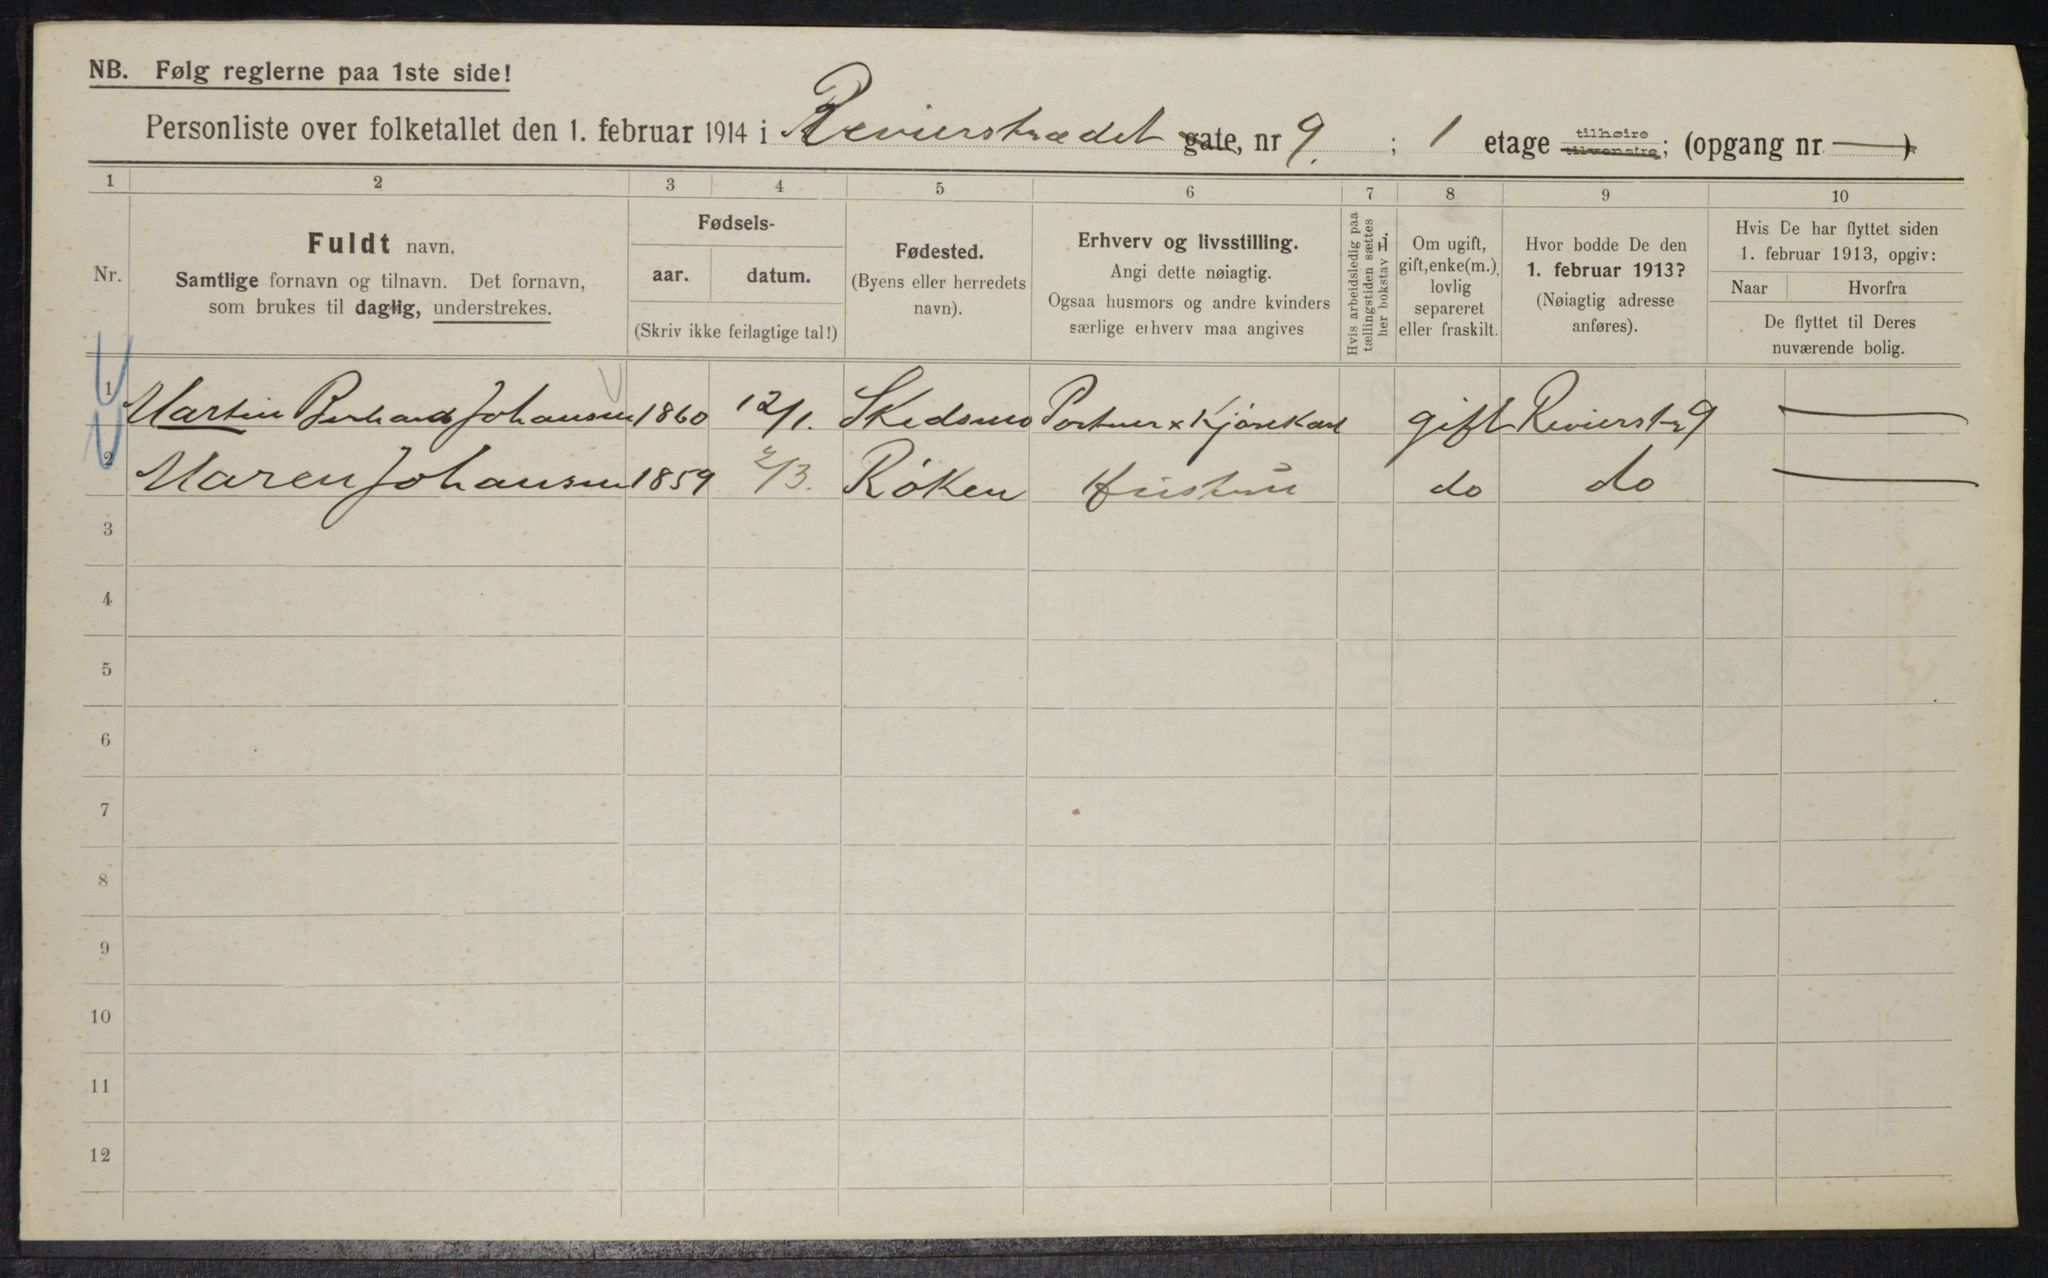 NB. Følg reglerne paa 1ste side!
Personliste over folketallet den 1. februar 1914 i Revierstrædet gate, nr 9. ; 1 etage tilhøire tilvenstre; (opgang nr — )
1 2 3 4 5 6 7 8 9 10
Nr.
Fuldt navn.
Samtlige fornavn og tilnavn. Det fornavn,
som brukes til daglig, understrekes.
Fødsels-
aar. datum.
(Skriv ikke feilagtige tal!)
Fødested.
(Byens eller herredets
navn).
Erhverv og livsstilling.
Angi dette nøiagtig.
Ogsaa husmors og andre kvinders
særlige erhverv maa angives
Hvis arbeidsledig paa
tællingstiden sættes
her bokstav L.
Om ugift,
gift, enke(m.),
lovlig
separeret
eller fraskilt.
Hvor bodde De den
1. februar 1913?
(Nøiagtig adresse
anføres).
Hvis De har flyttet siden
1. februar 1913, opgiv:
Naar Hvorfra
De flyttet til Deres
nuværende bolig.
1 Martin Bernhard Johansen 1860 12/1. Skedsmo Portner x Kjørekarl gift Revierstr 9 —
2 Maren Johansen 1859 2/3. Røken Hustru do do —
3
4
5
6
7
8
9
10
11
12